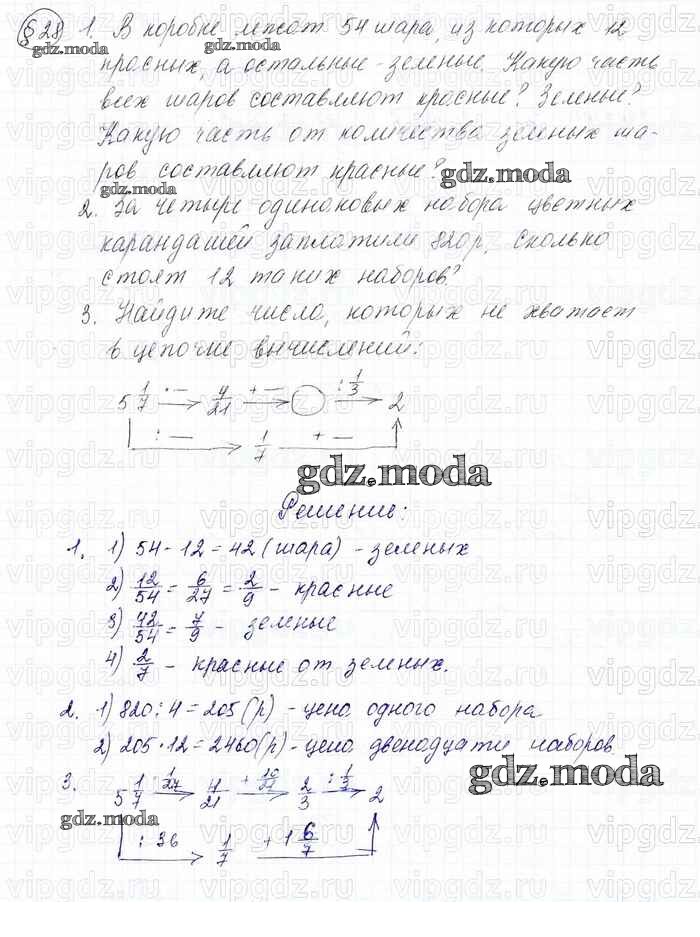 §28 1. В коробке лежат 54 шара, из которых 12
красных, а остальные - зеленые. Какую часть
всех шаров составляют красные? Зеленые?
Какую часть от количества зеленых ша-
ров составляют красные?
2. За четыре одинаковых набора цветных
карандашей заплатили 820 р. Сколько
стоят 12 таких наборов?
3. Найдите число, которых не хватает
в цепочке вычислений:
5 1/7 · — → 4/21 + — → ○ : 1/3 → 2
: — → 1/7 + — →
gdz.moda
Решение:
1. 1) 54 - 12 = 42 (шара) - зеленых
2) 12/54 = 6/27 = 2/9 - красные
3) 42/54 = 7/9 - зеленые
4) 2/7 - красные от зеленых.
2. 1) 820 : 4 = 205 (р) - цена одного набора
2) 205 · 12 = 2460 (р) - цена двенадцати наборов
3. 5 1/7 · 1/27 → 4/21 + 10/21 → 2/3 : 1/3 → 2
: 36 → 1/7 + 1 6/7
gdz.moda